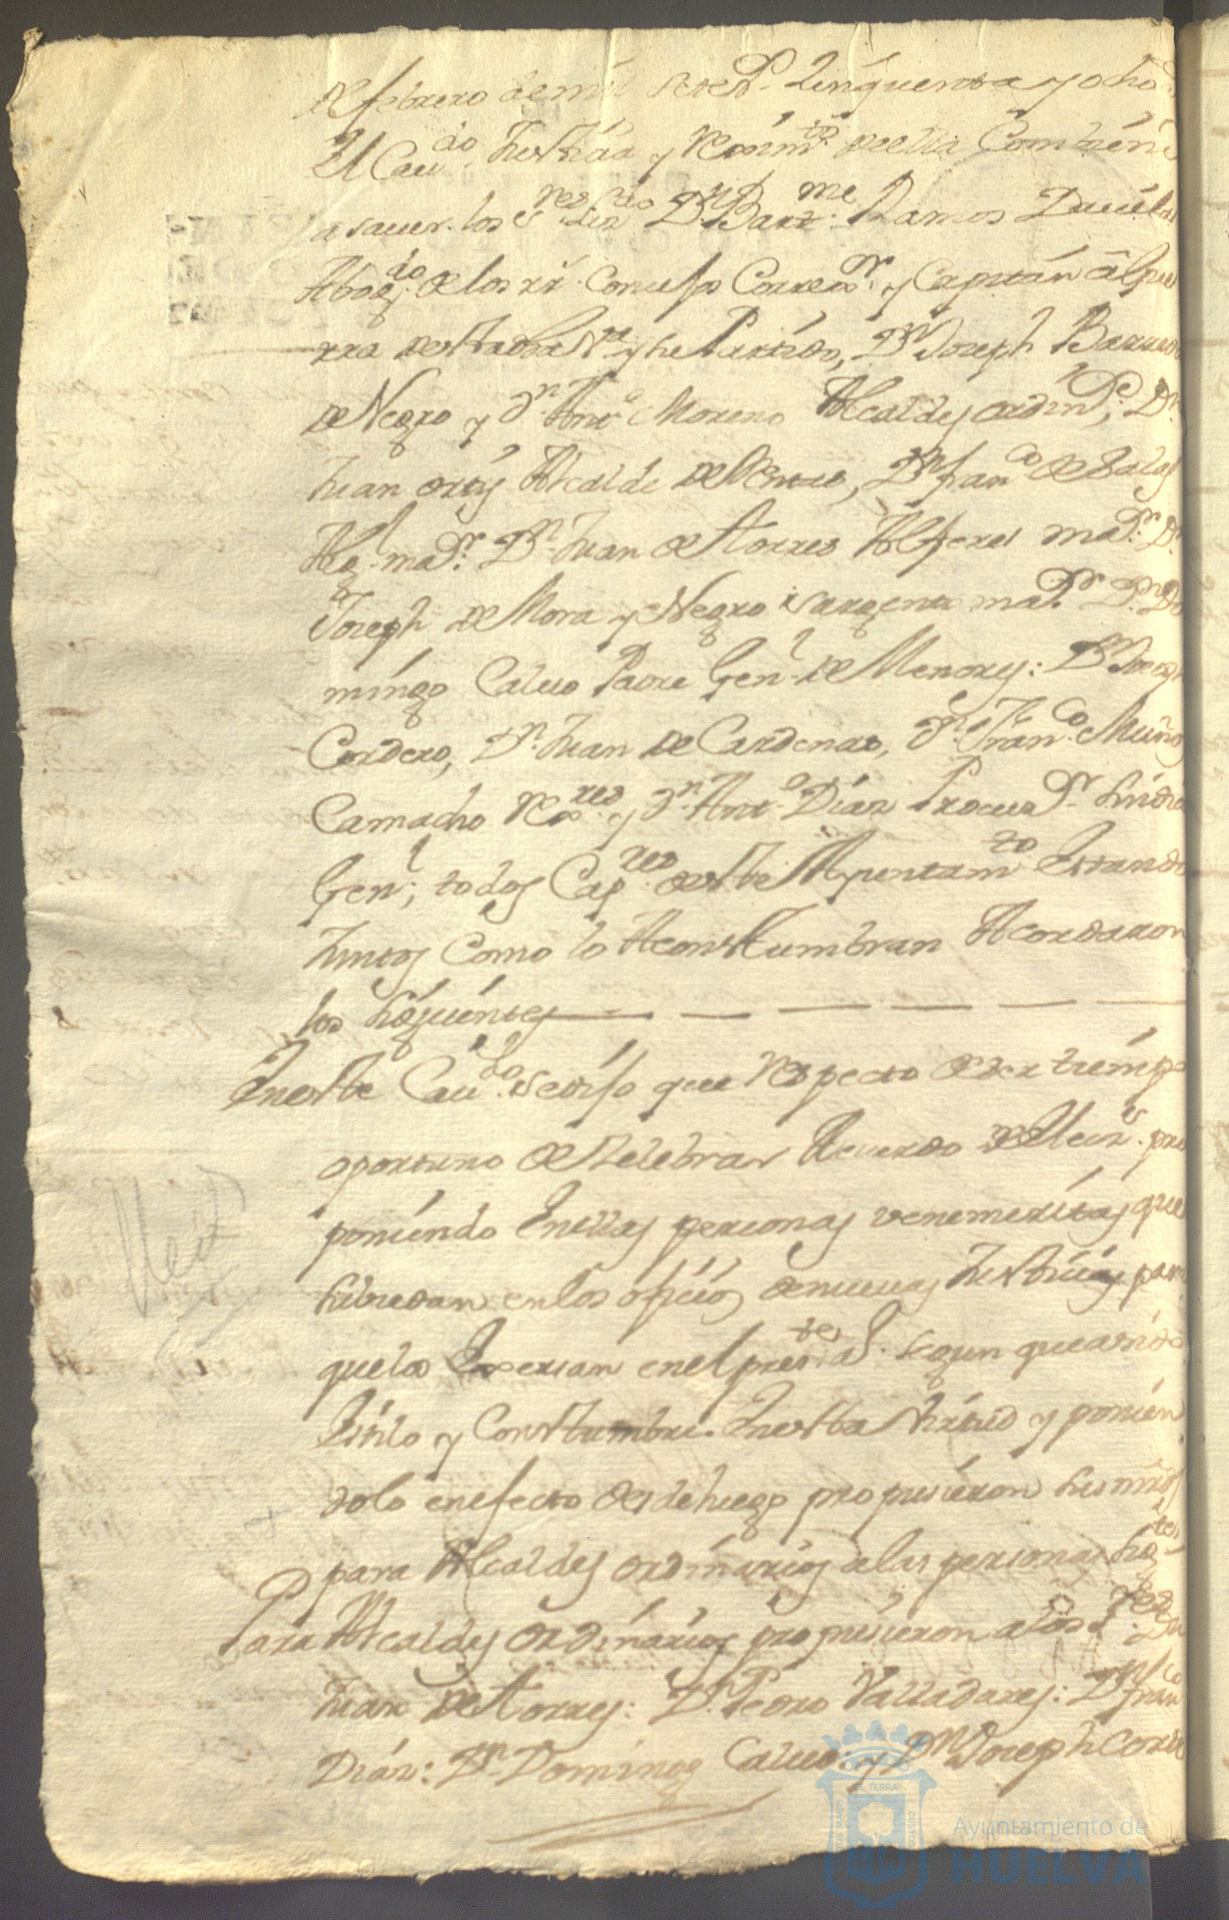 de febrero de mil setes.^s Cinquenta y ocho
El Cav.^do Justizia y Reximi.^to de ella Combiene
a saver. los s.^res Liz.^do D.^n Bart.^me Ramos Davila
Abog.^do de los r.^s Consejos Correx.^or y Capitan â Guer
rra de esta dha V.^a y su Partido, D.^n Joseph Barreda
de Negro y D.^n Ant.^o Moreno Alcaldes ordin.^s; D.^n
Juan ortiz Alcalde de Mestas, D.^n fran.^co de Salas
Alg.^l ma.^or D.^n Juan de Torres Alferes ma.^or D.^n
Joseph de Mora y Negro sargento ma.^or D.^n Do
mingo Calvo Padre Gen.^l de Menores: D.^n Joseph
Cordero, D.^n Juan de Cardenas, D.^n Fran.^co Muño
Camacho Rex.^res y D.^n Ant.^o Diaz Procur.^or sindico
Gen.^l; todos Cap.^res de este Ayuntam.^to Estando
Juntos Como lo Acostumbran Acordaron
los siguientes
En este Cav.^do se dijo que respecto de ser tiempo
oportuno de Zelebrar Acuerdo de Elecz.^s pro
poniendo En ellas personas venemeritas que
subzedan en los ofizios de nuevas Justizias para
que los Exersan en el pres.^te a.^o segun que a sido
Estilo y Constumbre. En esta Virtud y ponien
dolo en efecto desde luego propusieron sus m̃rds
para Alcaldes ordinarios a las personas sig.^tes
Para Alcaldes Ordinarios propusieron a los S.^res D.^n
Juan de Torres: D.^n Pedro Valladares: D.^n fran.^co
Diaz: D.^n Domingo Calvo: y D.^n Joseph Corde
Elecz
Ayuntamiento de
HUELVA